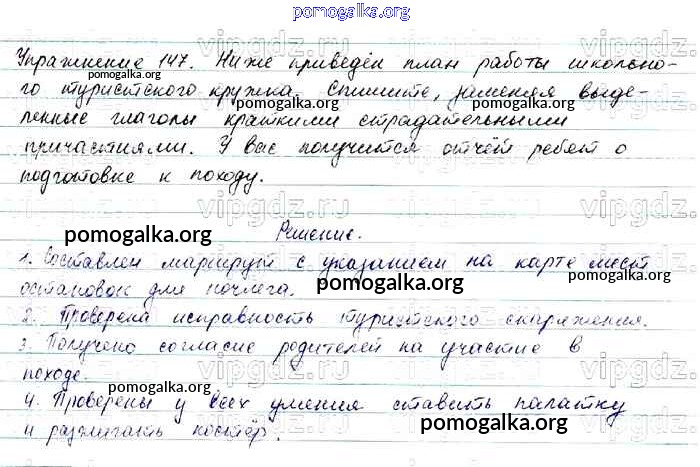 pomogalka.org
Упражнение 147. Ниже приведён план работы школьно-
pomogalka.org
го туристского кружка. Спишите, заменяя выде-
pomogalka.org
ленные глаголы краткими страдательными
причастиями. У вас получится отчёт ребят о
vipgdz.ru vipgdz.ru vipgdz
подготовке к походу.
Решение.
pomogalka.org
1. Составлен маршрут с указанием на карте мест
pomogalka.org pomogalka.org
остановок для ночлега.
2. Проверена исправность туристского снаряжения.
3. Получено согласие родителей на участие в
походе.
pomogalka.org
4. Проверены у всех умения ставить палатку
pomogalka.org pomogalka.org
и разжигать костёр.